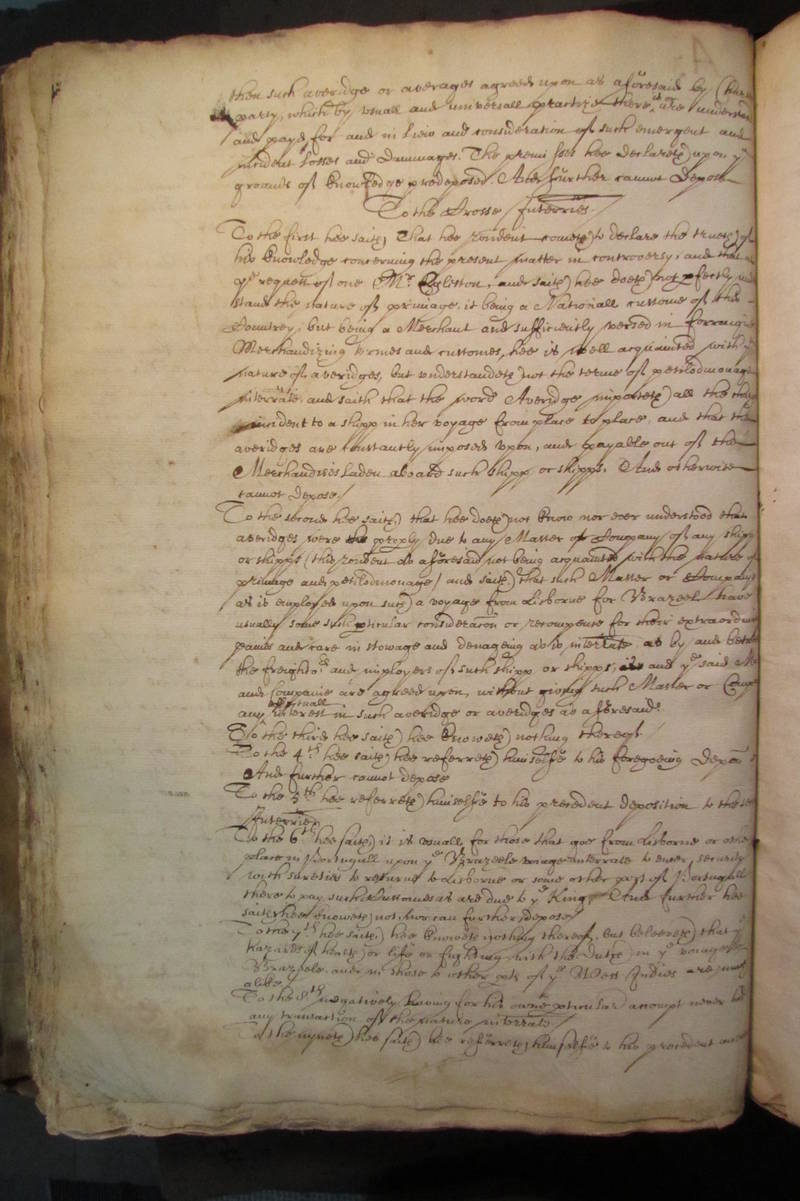 then such averidge or averages agreed upon as aforesaid by
party, which by usuall and universall practize there are understood
and payd for and in liew and consideration of such emergent and
incident losses and Dammages. The premisses hee declareth upon ye
grounds of knowledge predeposed. And further cannot depose
To the Crosse Interries
To the first hee saith, That hee rondent cometh to declare the trueth of
his knowledge concerning the present matter in controversy, and that at
ye request of one Mr Egleston, and saith hee doeth not pfectly und
stand the nature of primage, it being a Nationall custome of this
Countrey, but being a Merchant and sufficiently versed in forraigne
Merchandizing termes and customes, hee is well acquainted with ye
nature of averidges, but understandeth not the terme of petilodmonage
interrate, and saith that the word Averidge importeth all the
incident to a shipp in her voyage from place to place, and that the
averidges are constantly imposed upon, and payable out of the
Merchandizes laden aboard such shipp or shipps. And otherwise
cannot depose
To the second hee saith, that hee doeth not know nor ever understood that
averidges were proply due to any Master or Company of any shipp
or shipps (this rondent as aforesaid not being acquainted with the nature of
primage and petilodmonage) and saith that such Master or Company
as is employed upon such a voyage from Lisborne for Brazeel have
usually some such pticular consideracon or recompence for their extraordinary
paines and care in stowage and denageing as is interrate, as by and betweene
the freighters and imployers of such shipp or shipps, and ye said
and Companie are agreed upon, without giving such Master or
effectuall
any interest in such averidge or averidges as aforesaid.
To the third hee saith hee knoweth nothing thereof
To the 4th hee saith hee referreth himselfe to his foregoeing
And further cannot depose
To the 5th hee referreth himselfe to his precedent deposition to the
Interries
To the 6th hee saith it is usuall for those that goe from Lisborne or other
place in Portugall upon ye Brazeele voiage interrate to enter security
with sureties to returne to Lisborne or some other part of Portugall
there to pay such Customes as are due to ye King. And further hee
saith hee knoweth not, nor can further depose
To the 7th hee saith, hee knoweth nothing thereof, but beleeveth that ye
hazards of health or life or fighting with the Dutch in ye voyage
Brazeele, and in those to other pts of ye West Indies are much
alike
To the 8th negatively having for his owne pticular attempt never
any transaction of the nature interrate
To the nyneth hee saith hee referreth himselfe to his precedent